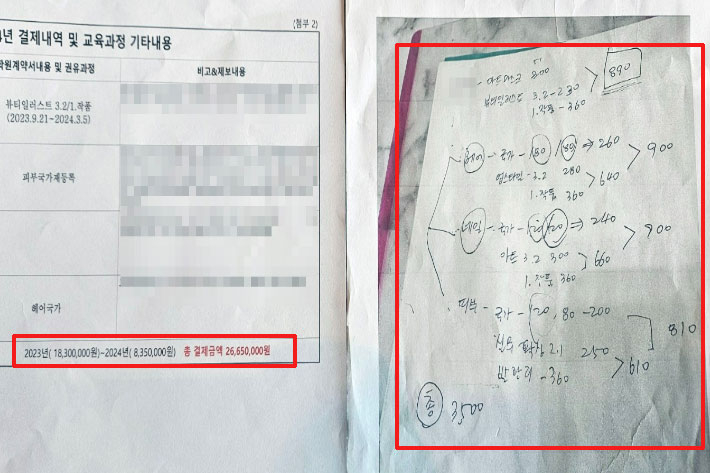 (첨부 2)
년 결제내역 및 교육과정 기타내용
학원계약서내용 및 권유과정
비고&제보내용
뷰티일러스트 3.2/1.작품
(2023.9.21~2024.3.5)
피부국가제등록
헤어국가
2023년( 18,300,000원)~2024년( 8,350,000원) 총 결제금액 26,650,000원
800
890
뷰티일러스트 3.2 - 230
1.작품 - 360
헤어 - 국가 - 180 / 80 ⇒ 260
900
3.2 280
640
1.작품 360
네일 - 국가 - 120 120 ⇒ 240
900
아트 3.2 300
660
1.작품 360
피부 - 국가 - 120, 80 - 200
810
2.1 250
610
반관리 - 360
총 3500